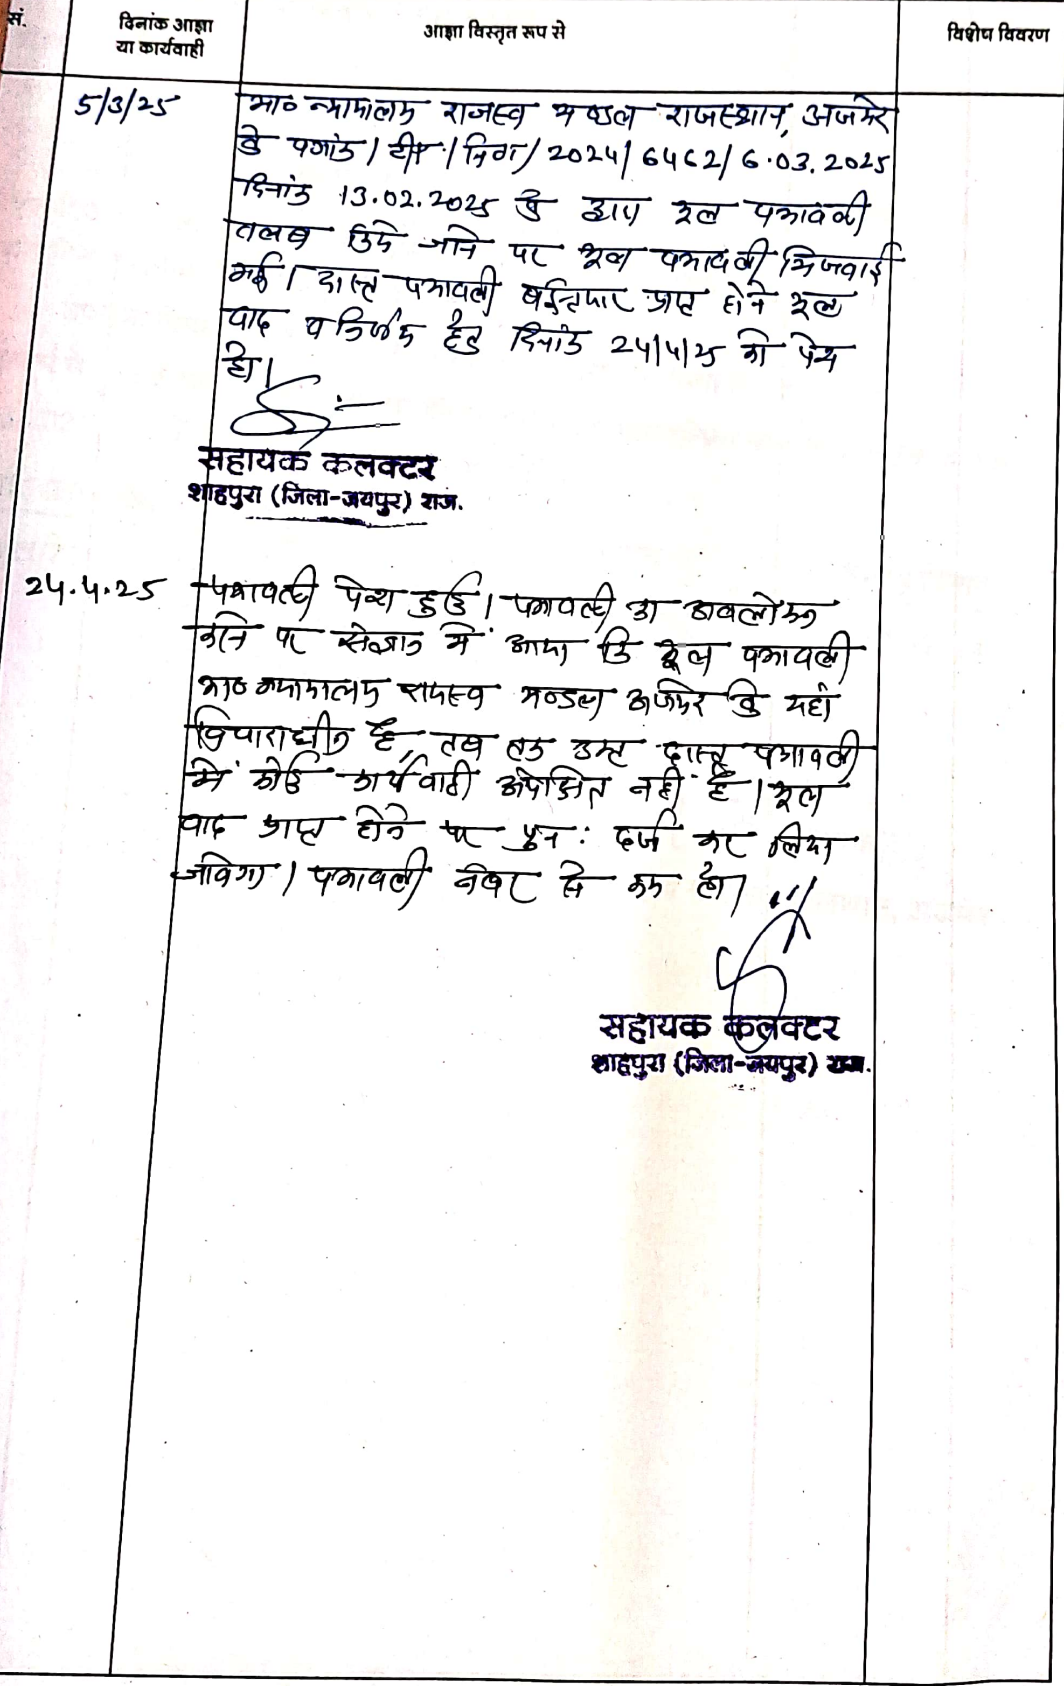 सं.
दिनांक आज्ञा
या कार्यवाही
आज्ञा विस्तृत रूप से
विशेष विवरण
5/3/25
मा० न्यायालय राजस्व मण्डल राजस्थान, अजमेर
के पत्रांक / / / 2024/ 6462/ 6.03.2025
दिनांक 13.02.2025 के द्वारा मूल पत्रावली
तलब किये जाने पर मूल पत्रावली भिजवाई
गई। दास्त पत्रावली प्राप्त होने मूल
वाद व निर्णय हेतु दिनांक 24/4/25 को पेश
हो।
सहायक कलक्टर
शाहपुरा (जिला-जयपुर) राज.
24.4.25
पत्रावली पेश हुई। पत्रावली का अवलोकन
करने पर संज्ञान में आया कि मूल पत्रावली
मा० न्यायालय राजस्व मण्डल अजमेर के यहाँ
विचाराधीन है, तब तक उक्त दास्त पत्रावली
में कोई कार्यवाही अपेक्षित नहीं है। मूल
वाद प्राप्त होने पर पुन: दर्ज कर लिया
जावेगा। पत्रावली नंबर से कम हो।
सहायक कलक्टर
शाहपुरा (जिला-जयपुर) राज.